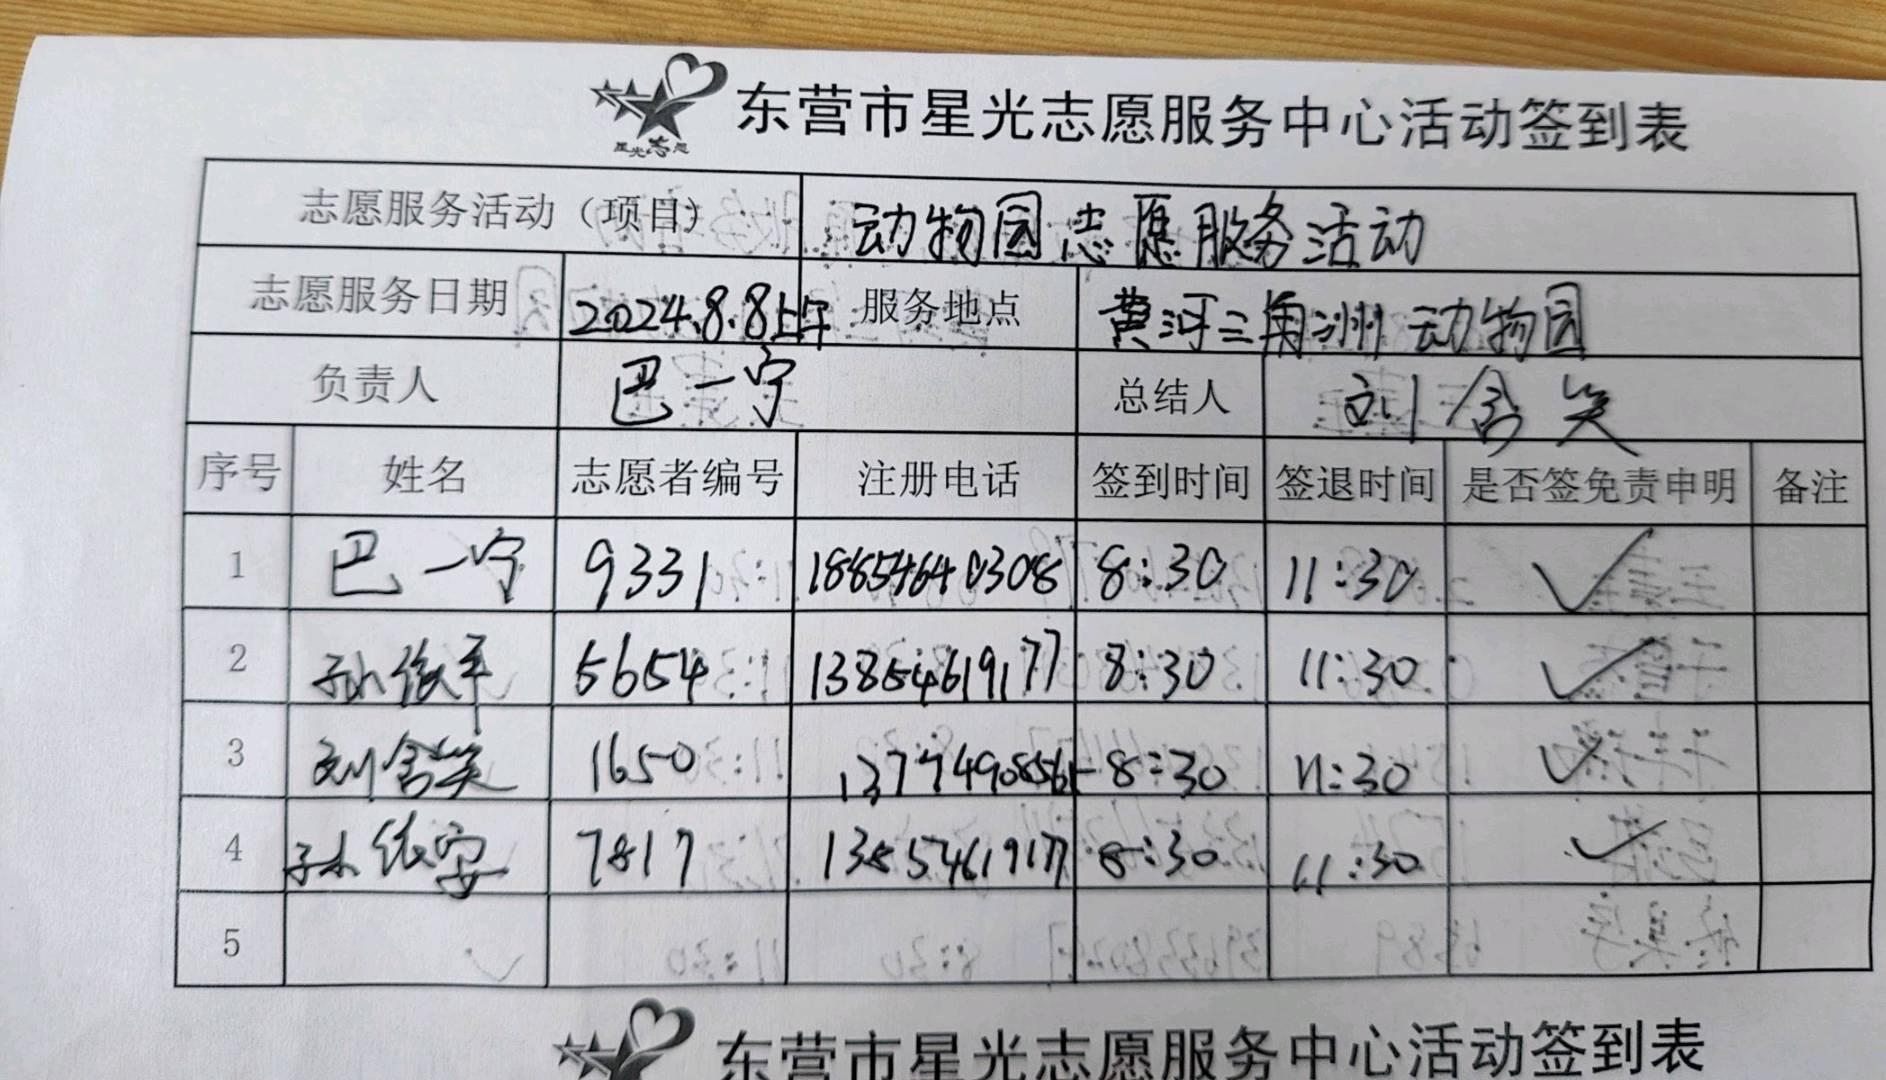 星光志愿
东营市星光志愿服务中心活动签到表
志愿服务活动（项目） 动物园志愿服务活动
志愿服务日期 2024.8.8上午 服务地点 黄河三角洲动物园
负责人 巴一宁 总结人 刘含笑
序号 姓名 志愿者编号 注册电话 签到时间 签退时间 是否签免责申明 备注
1 巴一宁 9331 18854640308 8:30 11:30 ✓
2 孙 5654 13854619177 8:30 11:30 ✓
3 刘含笑 1650 8:30 11:30 ✓
4 孙依安 7817 13854619177 8:30 11:30 ✓
5
东营市星光志愿服务中心活动签到表